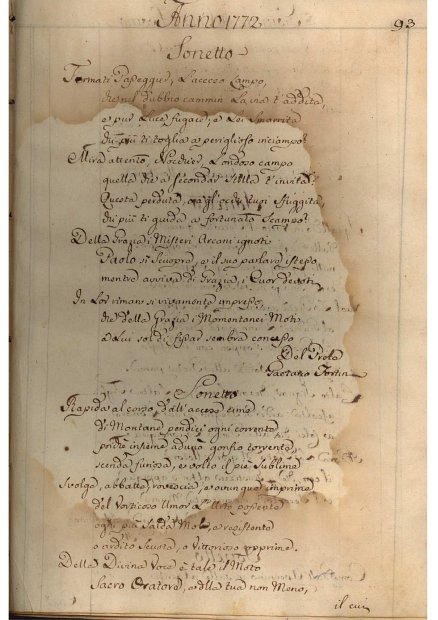 Anno 1772
93
Sonetto
Fermati Passeggier, L'acceso Lampo,
che nel dubbio cammin La via t'addita,
e pur Luce fugace, e Lei smarrita
chi più ti toglie a periglioso inciampo?
Mira attento, Nocchier, L'ondoso campo
quella che a secondar Stella t'invita:
Questa perduta, agl'occhi tuoi sfuggita,
chi più ti guida a fortunato Scampo?
Della Grazia i Misteri Arcani ignoti
Paolo si scuopra, e il suo parlare istesso
mentre avviva di Grazia, i Cuor devoti
In Lor riman sì vivamente impresso,
che della Grazia i Momentanei Moti
a Lui sol di fissar sembra concesso
Del Prete
Gaetano Fortin
Sonetto
Rapida al corso, dall'accese cime
di Montane pendici ogni corrente
poiche insieme adugò gonfio torrente
scende furiosa, e volto il piè Sublime
svolge, abbatte, rovescia, e ovunque imprime
del Vorticoso Umor
ogni più Salda Mole, e resistente
o ardito Scuote, o Vittorioso opprime.
Della Divina Voce è tale il Moto
Sacro Oratore, e della tua non Meno,
il cui